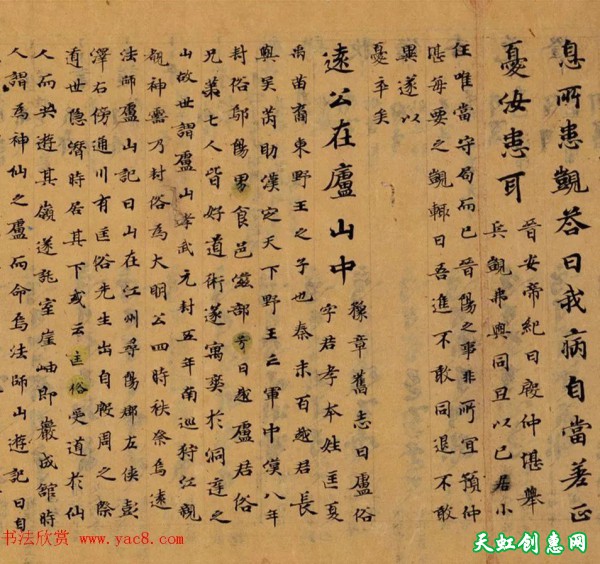 息所患覬荅曰我病自當差正
憂汝患耳
晉安帝紀曰殷仲堪舉
兵覬弗與同且以已居小
任唯當守局而已晉陽之事非所宜預仲
堪每要之覬輒曰吾進不敢同退不敢
異遂以
憂卒矣
遠公在廬山中
豫章舊志曰廬俗
字君孝本姓匡夏
禹苗裔東野王之子也秦末百越君長
與吴芮助漢定天下野王亡軍中漢八年
封俗鄔陽男食邑滋部曰越廬君俗
兄弟七人皆好道術遂寓爽於洞庭之
山故世謂廬山孝武元封五年南巡狩江親
覩神靈乃封俗為大明公四時秩祭焉遠
法師廬山記曰山在江州尋陽郡左俠彭
澤右傍通川有匡俗先生出自殷周之際
遁世隐潛時居其下或云匡俗受道於仙
人而共遊其嶺遂託室崖岫即巖成館時
人謂為神仙之廬而命焉法師山遊記曰自
书法欣赏 www.yac8.com
天虹创惠网